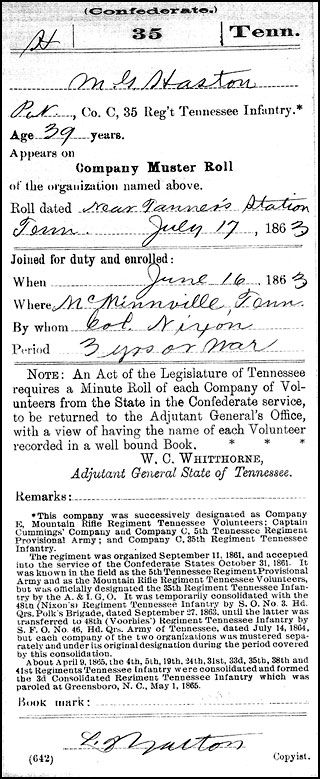 (Confederate.)
H 35 Tenn.
M G Haston
Pvt, Co. C, 35 Reg't Tennessee Infantry.*
Age 39 years.
Appears on
Company Muster Roll
of the organization named above.
Roll dated Near Tanner's Station
Tenn. July 17, 1863
Joined for duty and enrolled:
When June 16, 1863
Where McMinnville, Tenn.
By whom Col. Nixon
Period 3 yrs or War
NOTE: An Act of the Legislature of Tennessee
requires a Minute Roll of each Company of Vol-
unteers from the State in the Confederate service,
to be returned to the Adjutant General's Office,
with a view of having the name of each Volunteer
recorded in a well bound Book. * * *
W. C. WHITTHORNE,
Adjutant General State of Tennessee.
Remarks:
*This company was successively designated as Company
E, Mountain Rifle Regiment Tennessee Volunteers; Captain
Cummings' Company and Company C, 5th Tennessee Regiment
Provisional Army; and Company C, 35th Regiment Tennessee
Infantry.
The regiment was organized September 11, 1861, and accepted
into the service of the Confederate States October 31, 1861. It
was known in the field as the 5th Tennessee Regiment Provisional
Army and as the Mountain Rifle Regiment Tennessee Volunteers,
but was officially designated the 35th Regiment Tennessee Infan-
try by the A. & I. G. O. It was temporarily consolidated with the
48th (Nixon's) Regiment Tennessee Infantry by S. O. No. 3. Hd.
Qrs. Polk's Brigade, dated September 27, 1863, until the latter was
transferred to 48th (Voorhies') Regiment Tennessee Infantry by
S. F. O. No. 46, Hd. Qrs. Army of Tennessee, dated July 14, 1864,
but each company of the two organizations was mustered sepa-
rately and under its original designation during the period covered
by this consolidation.
About April 9, 1865, the 4th, 5th, 19th, 24th, 31st, 33d, 35th, 38th and
41st Regiments Tennessee Infantry were consolidated and formed
the 3d Consolidated Regiment Tennessee Infantry which was
paroled at Greensboro, N. C., May 1, 1865.
Book mark:
(642) Copyist.